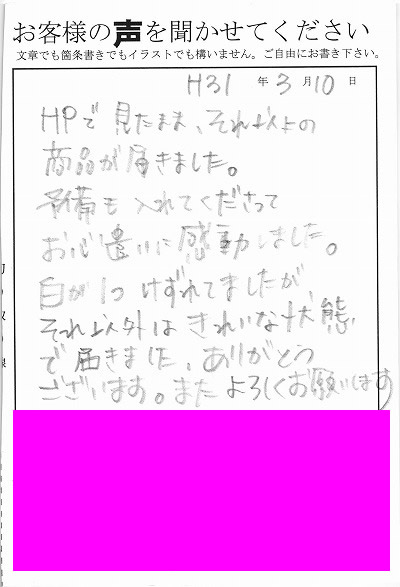 お客様の声を聞かせてください
文章でも箇条書きでもイラストでも構いません。ご自由にお書き下さい。
H31 年 3 月 10 日
HPで見たまま、それ以上の
商品が届きました。
予備も入れてくださって
お心遣いに感動しました。
白が1つ けずれてましたが、
それ以外は きれいな状態
で届きました、ありがとう
ございます。またよろしくお願いします